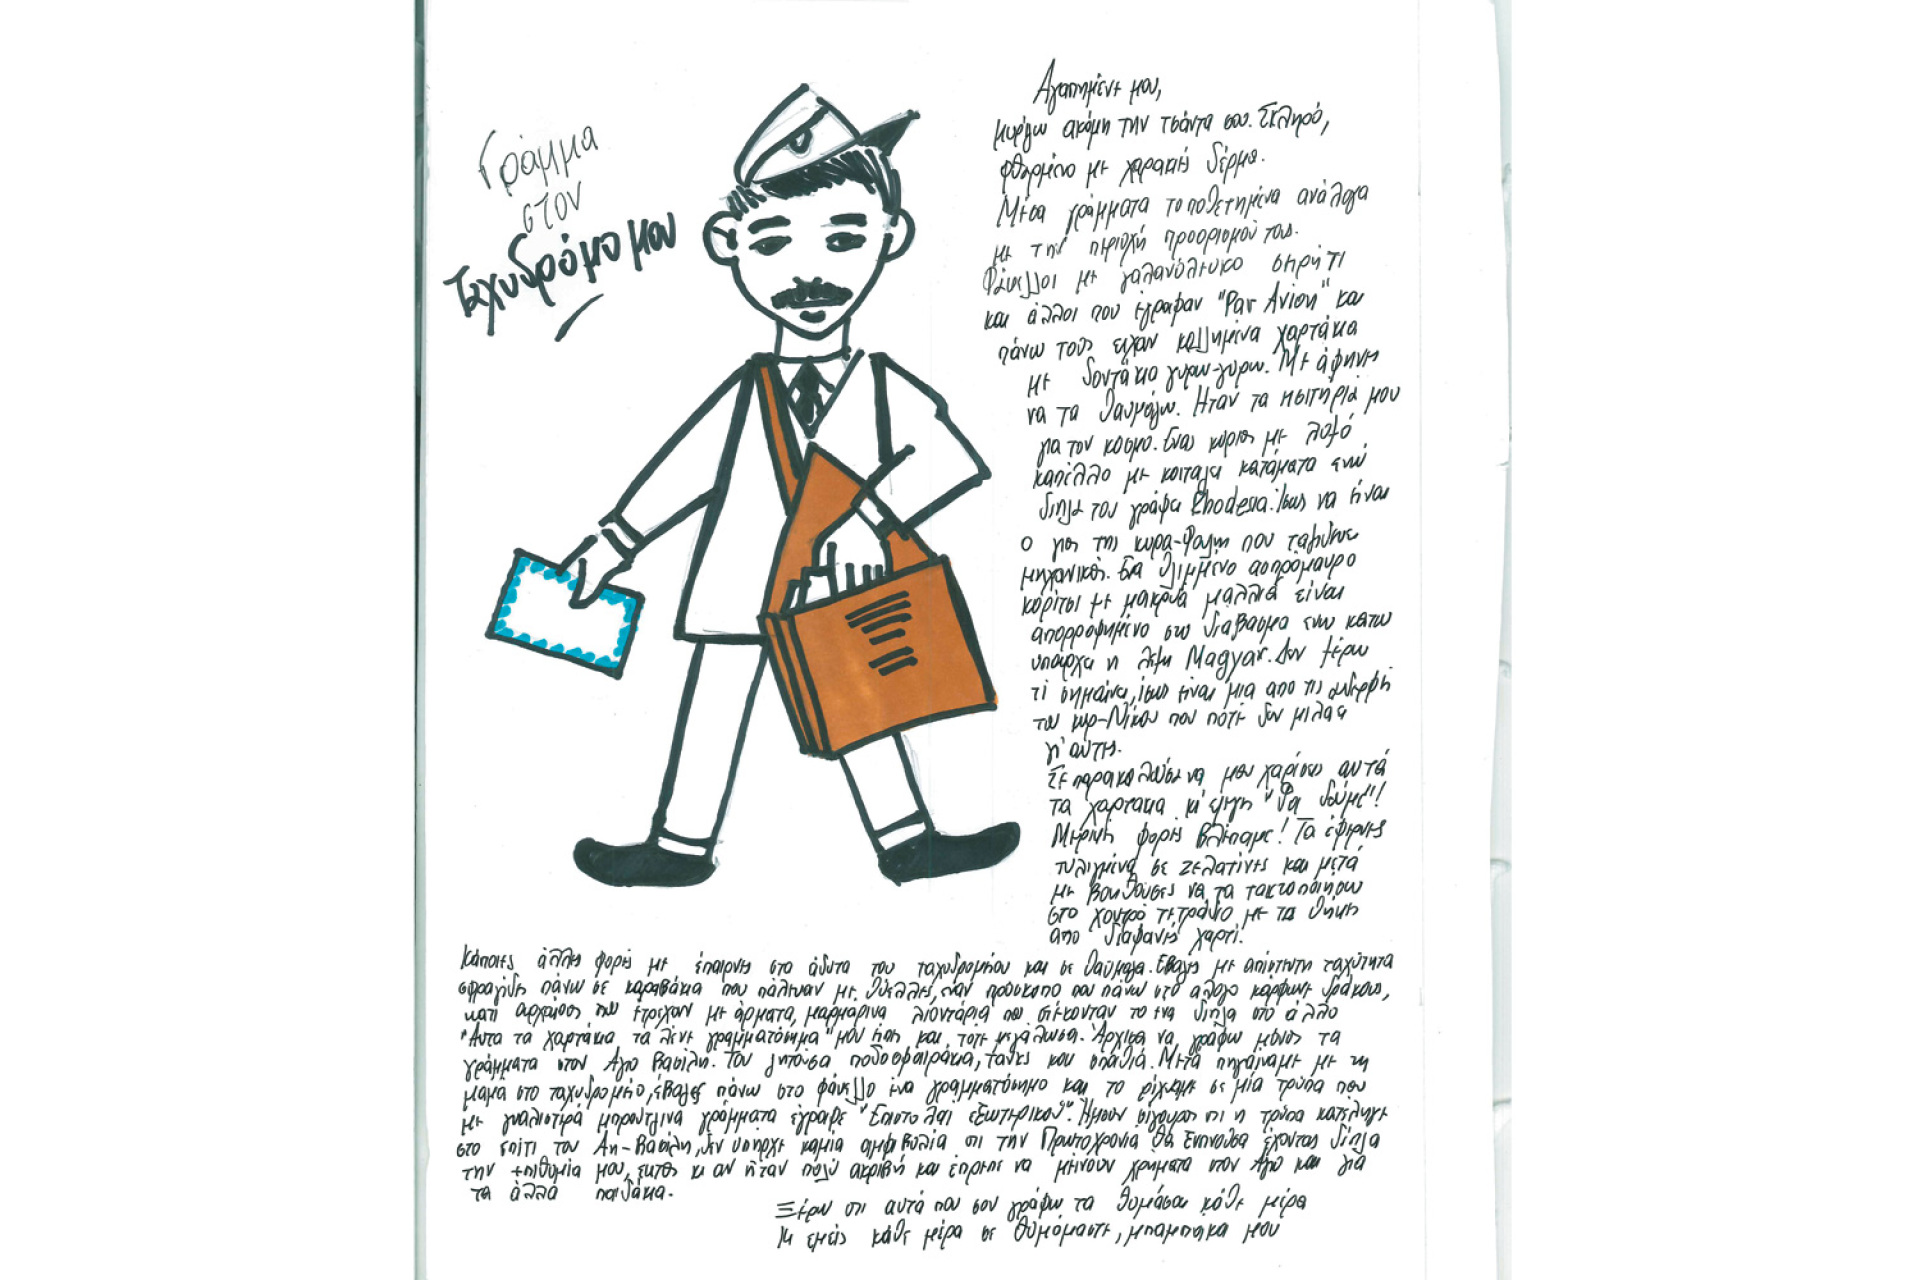 Γράμμα
στον
ταχυδρόμο μου
Αγαπημένε μου,
μυρίζω ακόμη την τσάντα σου. Σκληρό,
φθαρμένο με χαρακιές δέρμα.
Μέσα γράμματα τοποθετημένα ανάλογα
με την περιοχή προορισμού τους.
Φάκελλοι με γαλανόλευκο σιρήτι
και άλλοι που έγραφαν "Par Avion" και
πάνω τους είχαν κολλημένα χαρτάκια
με δοντάκια γύρω-γύρω. Με άφηνες
να τα θαυμάζω. Ήταν τα εισιτήρια μου
για τον κόσμο. Ένας κύριος με
καπέλλο με κοιτάζει κατάματα ενώ
δίπλα του γράφει Rhodesia. Ίσως να είναι
ο γιος της κυρα- που ταξιδεύει
μηχανικός. Ένα θλιμμένο ασπρόμαυρο
κορίτσι με μακρυά μαλλιά είναι
απορροφημένο στο διάβασμα ενώ κάτω
υπάρχει η λέξη Magyar. Δεν ξέρω
τί σημαίνει, ίσως είναι μια από τις αδερφές
του κυρ-Νίκου που ποτέ δεν μιλάει
γι' αυτές.
Σε παρακαλούσα να μου χαρίσεις αυτά
τα χαρτάκια κι' έλεγες "Θα δούμε"!
Μερικές φορές βλέπαμε! Τα έφερνες
τυλιγμένα σε ζελατίνες και μετά
με βοηθούσες να τα τακτοποιήσω
στο χοντρό τετράδιο με τις θήκες
από διαφανές χαρτί.
Κάποιες άλλες φορές με έπαιρνες στα άδυτα του ταχυδρομείου και σε θαύμαζα. Έβαζες με απίστευτη ταχύτητα
σφραγίδες πάνω σε καραβάκια που πάλευαν με θύελλες, έναν πρόσκοπο που πάνω στο άλογο κάρφωνε δράκους,
κάτι αρχαίους που έτρεχαν με άρματα, μαρμάρινα λιοντάρια που στέκονταν το ένα δίπλα στο άλλο
"Αυτά τα χαρτάκια τα λένε γραμματόσημα" μου είπες και τότε μεγάλωσα. Άρχισα να γράφω μόνος τα
γράμματα στον Άγιο Βασίλη. Του ζητούσα ποδοσφαιράκια, τανκς και σπαθιά. Μετά πηγαίναμε με τη
μαμά στο ταχυδρομείο, έβαζες πάνω στο φάκελλο ένα γραμματόσημο και το ρίχναμε σε μία τρύπα που
με γυαλιστερά μπρούτζινα γράμματα έγραφε "Επιστολαί εξωτερικού". Ήμουν σίγουρος οτι η τρύπα κατέληγε
στο σπίτι του Αη-Βασίλη, δεν υπήρχε καμία αμφιβολία οτι την Πρωτοχρονιά θα ξυπνούσα έχοντας δίπλα
την επιθυμία μου, εκτός κι αν ήταν πολύ ακριβή και έπρεπε να μείνουν χρήματα στον Άγιο και για
τα άλλα παιδάκια.
Ξέρω οτι αυτά που σου γράφω τα θυμάσαι κάθε μέρα
Κι εμείς κάθε μέρα σε θυμόμαστε, μπαμπάκα μου